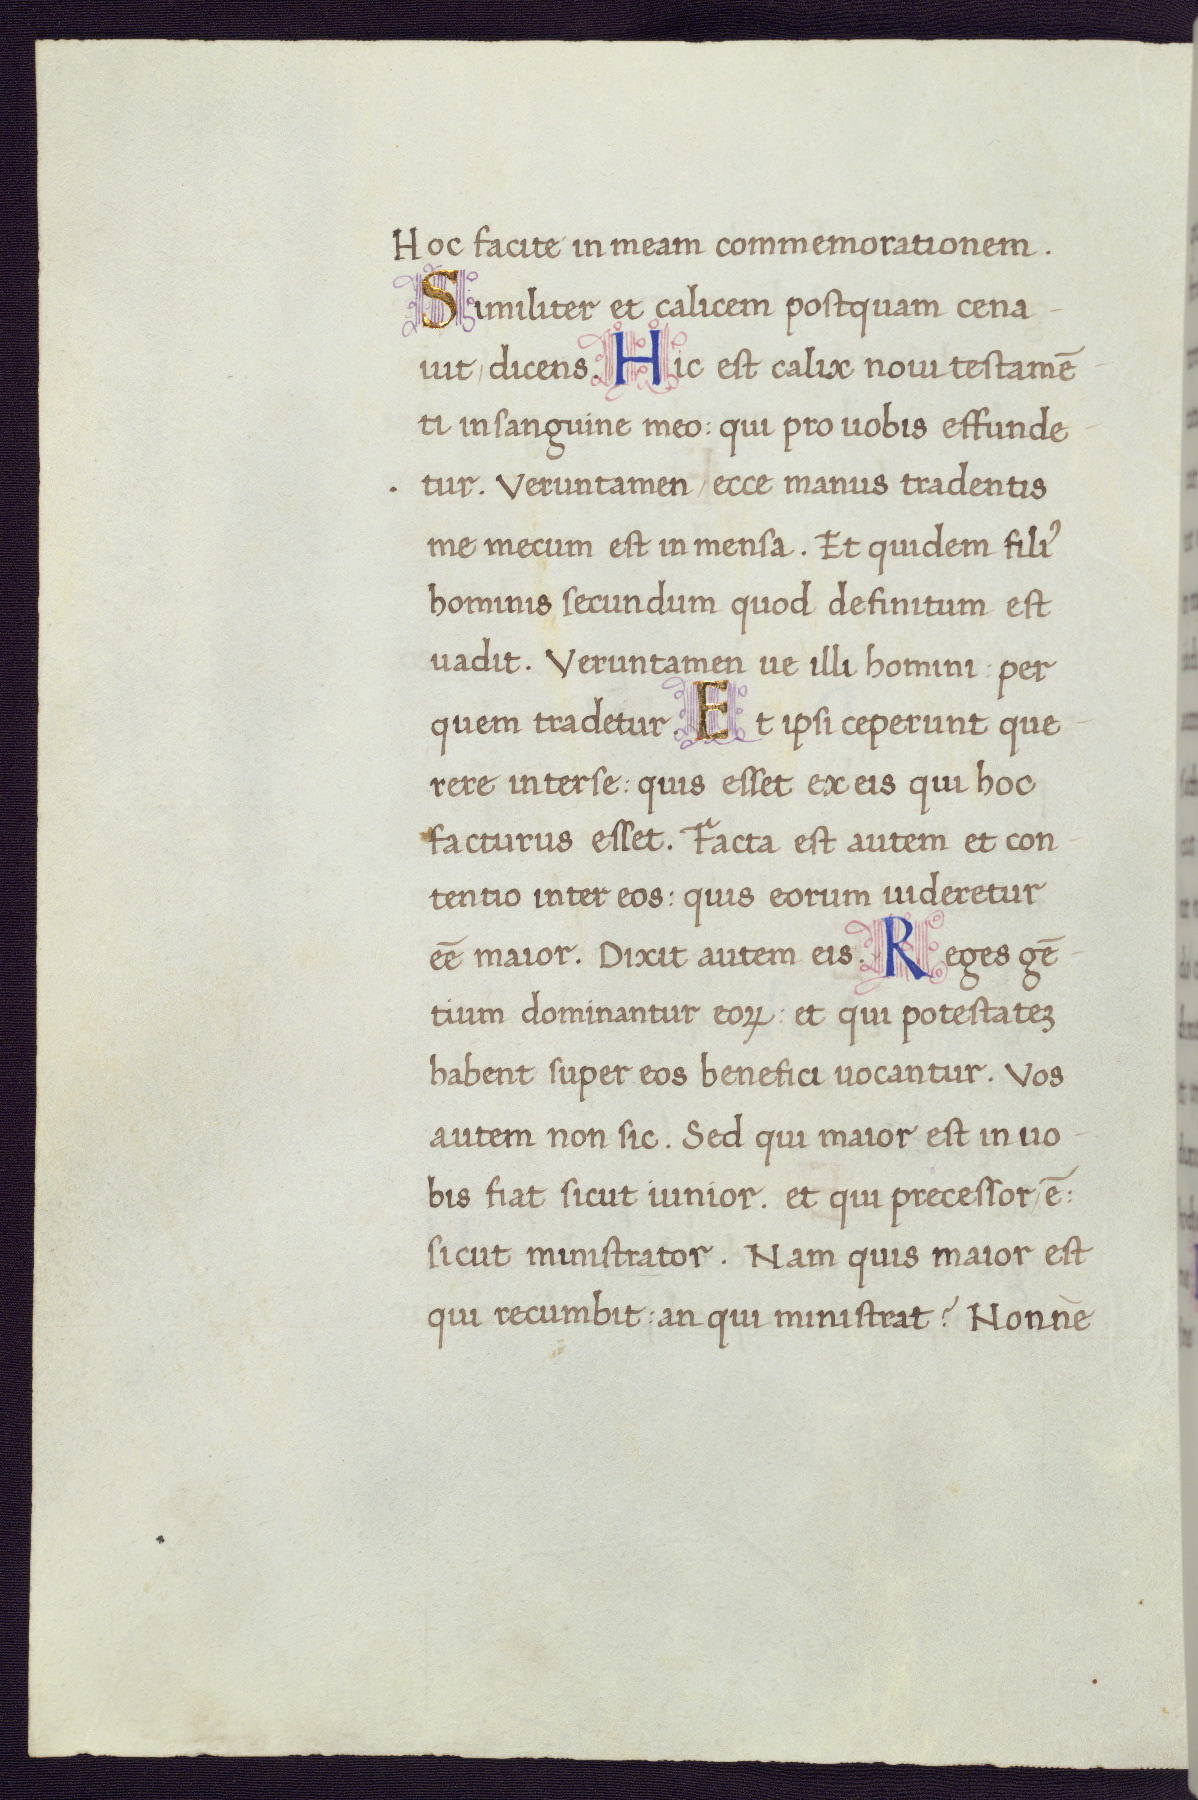 Hoc facite in meam commemorationem.
Similiter et calicem postquam cena
uit/ dicens. Hic est calix noui testamē
ti in sanguine meo: qui pro uobis effunde
tur. Veruntamen / ecce manus tradentis
me mecum est in mensa. Et quidem fili᾿
hominis secundum quod definitum est
uadit. Veruntamen ue illi homini: per
quem tradetur. Et ipsi ceperunt que
rere inter se: quis esset ex eis qui hoc
facturus esset. Facta est autem et con
tentio inter eos: quis eorum uideretur
eē maior. Dixit autem eis. Reges gē
tium dominantur eoꝝ: et qui potestateʒ
habent super eos benefici uocantur. Vos
autem non sic. Sed qui maior est in uo
bis fiat sicut iunior. et qui precessor ē:
sicut ministrator. Nam quis maior est
qui recumbit: an qui ministrat? Nonne